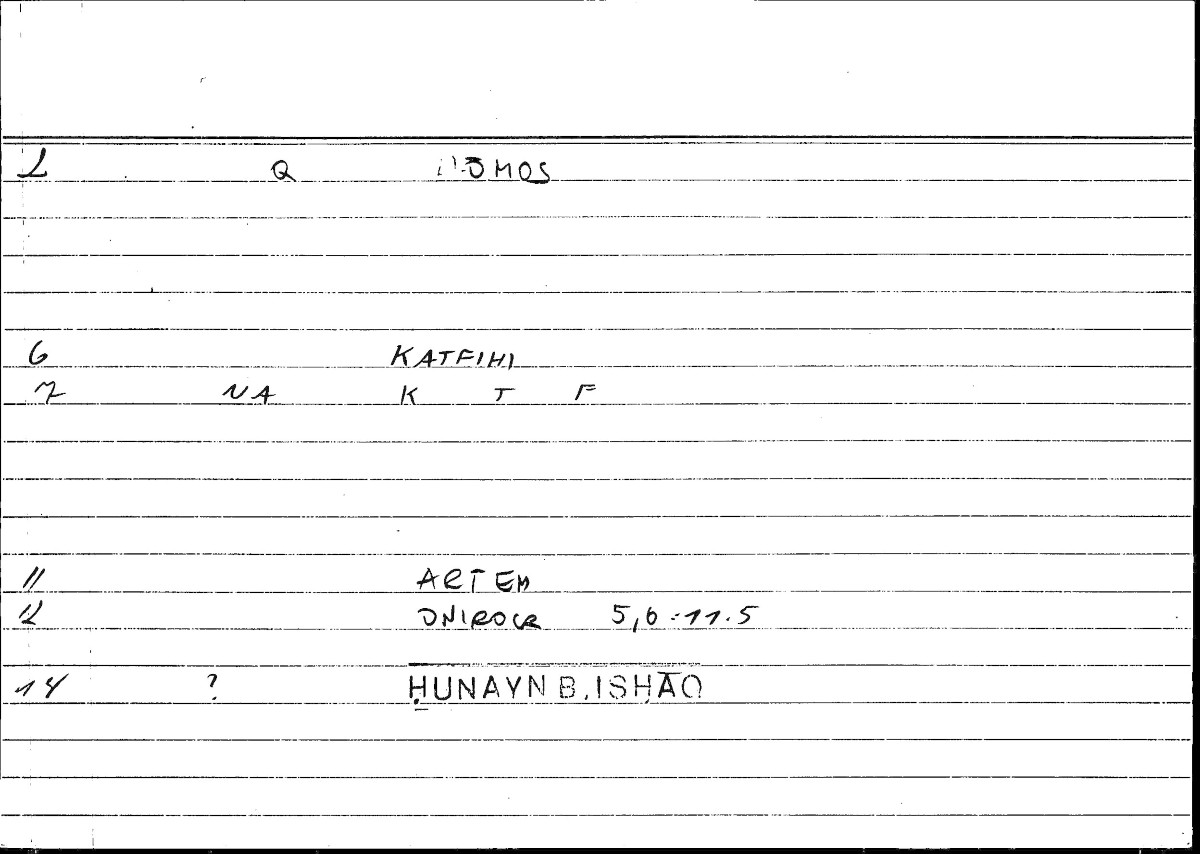 1 Q NŌMOS
6 KATFIHI
7 NA K T F
11 ARTEM
12 ONIROCR 5,6-11.5
14 ? ḤUNAYN B. ISḤĀQ